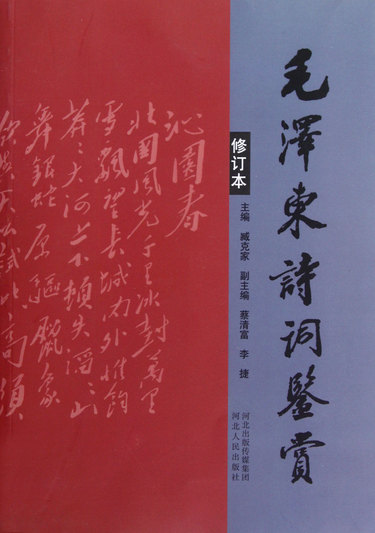 毛澤東詩詞鑒賞
修订本
主编 臧克家 副主编 蔡清富 李 捷
河北出版传媒集团
河北人民出版社
沁園春
北國風光千里冰封萬里
雪飄望長城内外惟餘
莽〻大河上下頓失滔〻
舞銀蛇原驅臘象
欲與天公試比高須